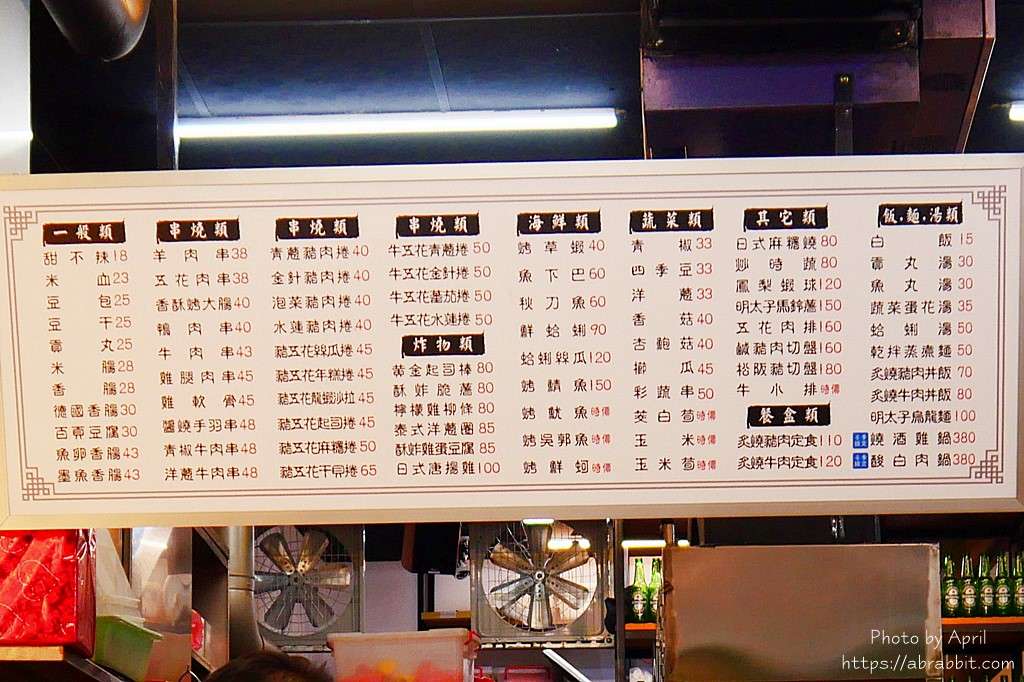 一般類
甜不辣18
米血23
豆包25
豆干25
貢丸25
米腸28
香腸28
德國香腸30
百頁豆腐30
魚卵香腸43
墨魚香腸43
串燒類
羊肉串38
五花肉串38
香酥烤大腸40
鴨肉串40
牛肉串43
雞腿肉串45
雞軟骨45
醬燒手羽串48
青椒牛肉串48
洋蔥牛肉串48
串燒類
青蔥豬肉捲40
金針豬肉捲40
泡菜豬肉捲40
水蓮豬肉捲40
豬五花絲瓜捲45
豬五花年糕捲45
豬五花龍蝦沙拉45
豬五花起司捲45
豬五花麻糬捲50
豬五花干貝捲65
串燒類
牛五花青蔥捲50
牛五花金針捲50
牛五花蕃茄捲50
牛五花水蓮捲50
炸物類
黃金起司棒80
酥炸脆藕80
檸檬雞柳條80
泰式洋蔥圈85
酥炸雞蛋豆腐85
日式唐揚雞100
海鮮類
烤草蝦40
魚下巴60
秋刀魚60
鮮蛤蜊90
蛤蜊絲瓜120
烤鯖魚150
烤魷魚時價
烤吳郭魚時價
烤鮮蚵時價
蔬菜類
青椒33
四季豆33
洋蔥33
香菇40
杏鮑菇40
櫛瓜45
彩蔬串50
茭白筍時價
玉米時價
玉米筍時價
其它類
日式麻糬燒80
炒時蔬80
鳳梨蝦球120
明太子馬鈴薯150
五花肉排160
鹹豬肉切盤160
松阪豬切盤180
牛小排時價
餐盒類
炙燒豬肉定食110
炙燒牛肉定食120
飯.麵.湯類
白飯15
貢丸湯30
魚丸湯30
蔬菜蛋花湯35
蛤蜊湯50
乾拌蒸煮麵50
炙燒豬肉丼飯70
炙燒牛肉丼飯80
明太子烏龍麵100
冬季限定燒酒雞鍋380
冬季限定酸白肉鍋380
Photo by April
https://abrabbit.com